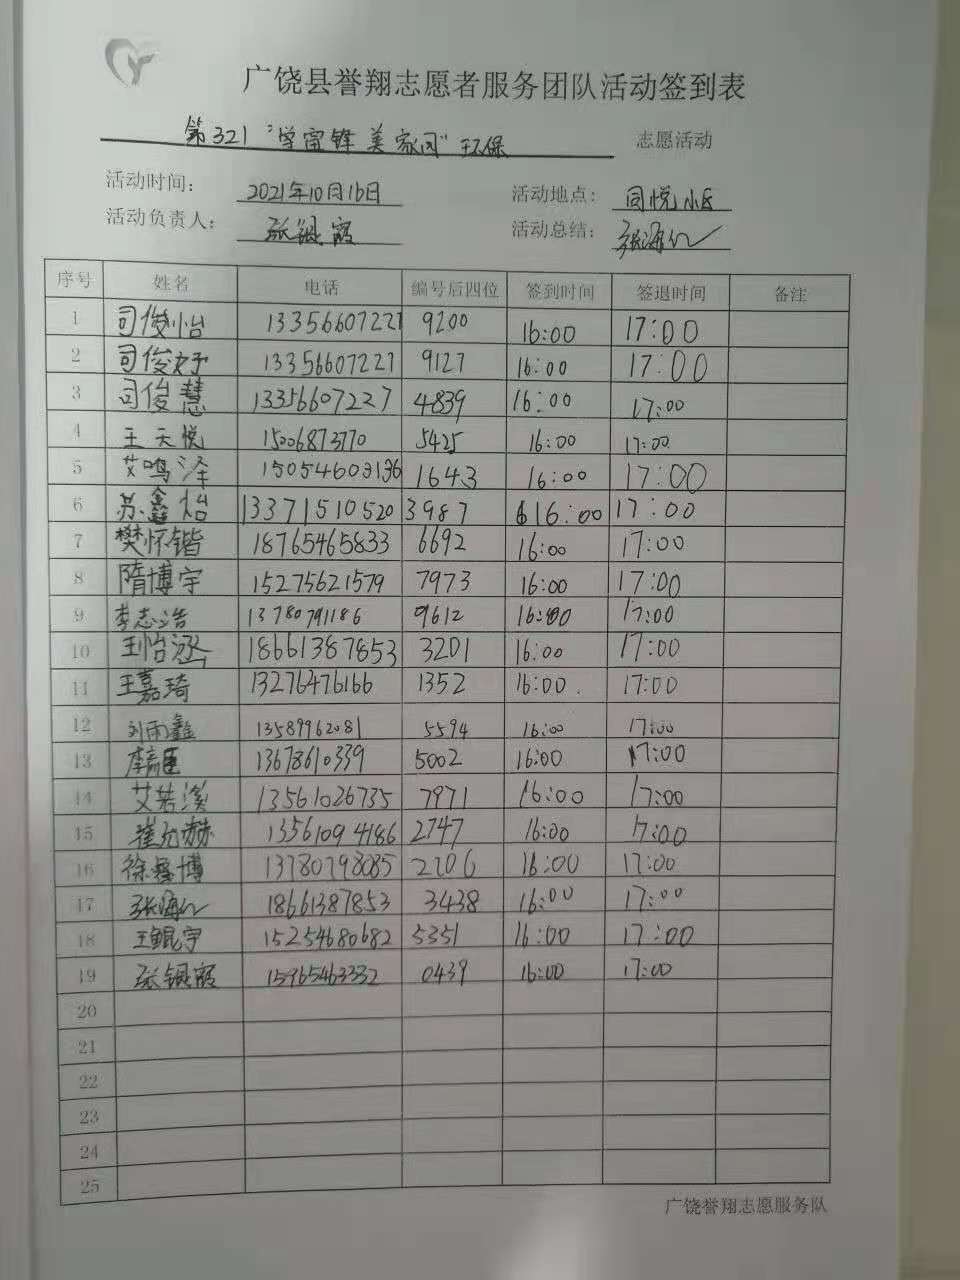 广饶县誉翔志愿者服务团队活动签到表
第321"学雷锋 美家园"环保 志愿活动
活动时间： 2021年10月16日 活动地点： 同悦小区
活动负责人： 张银霞 活动总结： 张海仁
序号 姓名 电话 编号后四位 签到时间 签退时间 备注
1 司俊怡 13356607227 9200 16:00 17:00
2 司俊好 13356607227 9127 16:00 17:00
3 司俊慧 13356607227 4839 16:00 17:00
4 王天悦 15006873770 5425 16:00 17:00
5 艾鸣泽 15054603136 1643 16:00 17:00
6 苏鑫怡 13371510520 3987 16:00 17:00
7 樊怀锴 18765465833 6692 16:00 17:00
8 隋博宇 15275621579 7973 16:00 17:00
9 李志浩 13780791186 9612 16:00 17:00
10 王怡涵 18661387853 3201 16:00 17:00
11 王嘉琦 13276476166 1352 16:00 17:00
12 刘雨鑫 13589962081 5594 16:00 17:00
13 13678610339 5002 16:00 17:00
14 艾若溪 13561026735 7971 16:00 17:00
15 崔允赫 13561094186 2747 16:00 17:00
16 徐鑫博 13780798085 2706 16:00 17:00
17 张海仁 18661387853 3438 16:00 17:00
18 王鲲宇 15254680682 5351 16:00 17:00
19 张银霞 15965463332 0439 16:00 17:00
20
21
22
23
24
25
广饶誉翔志愿服务队